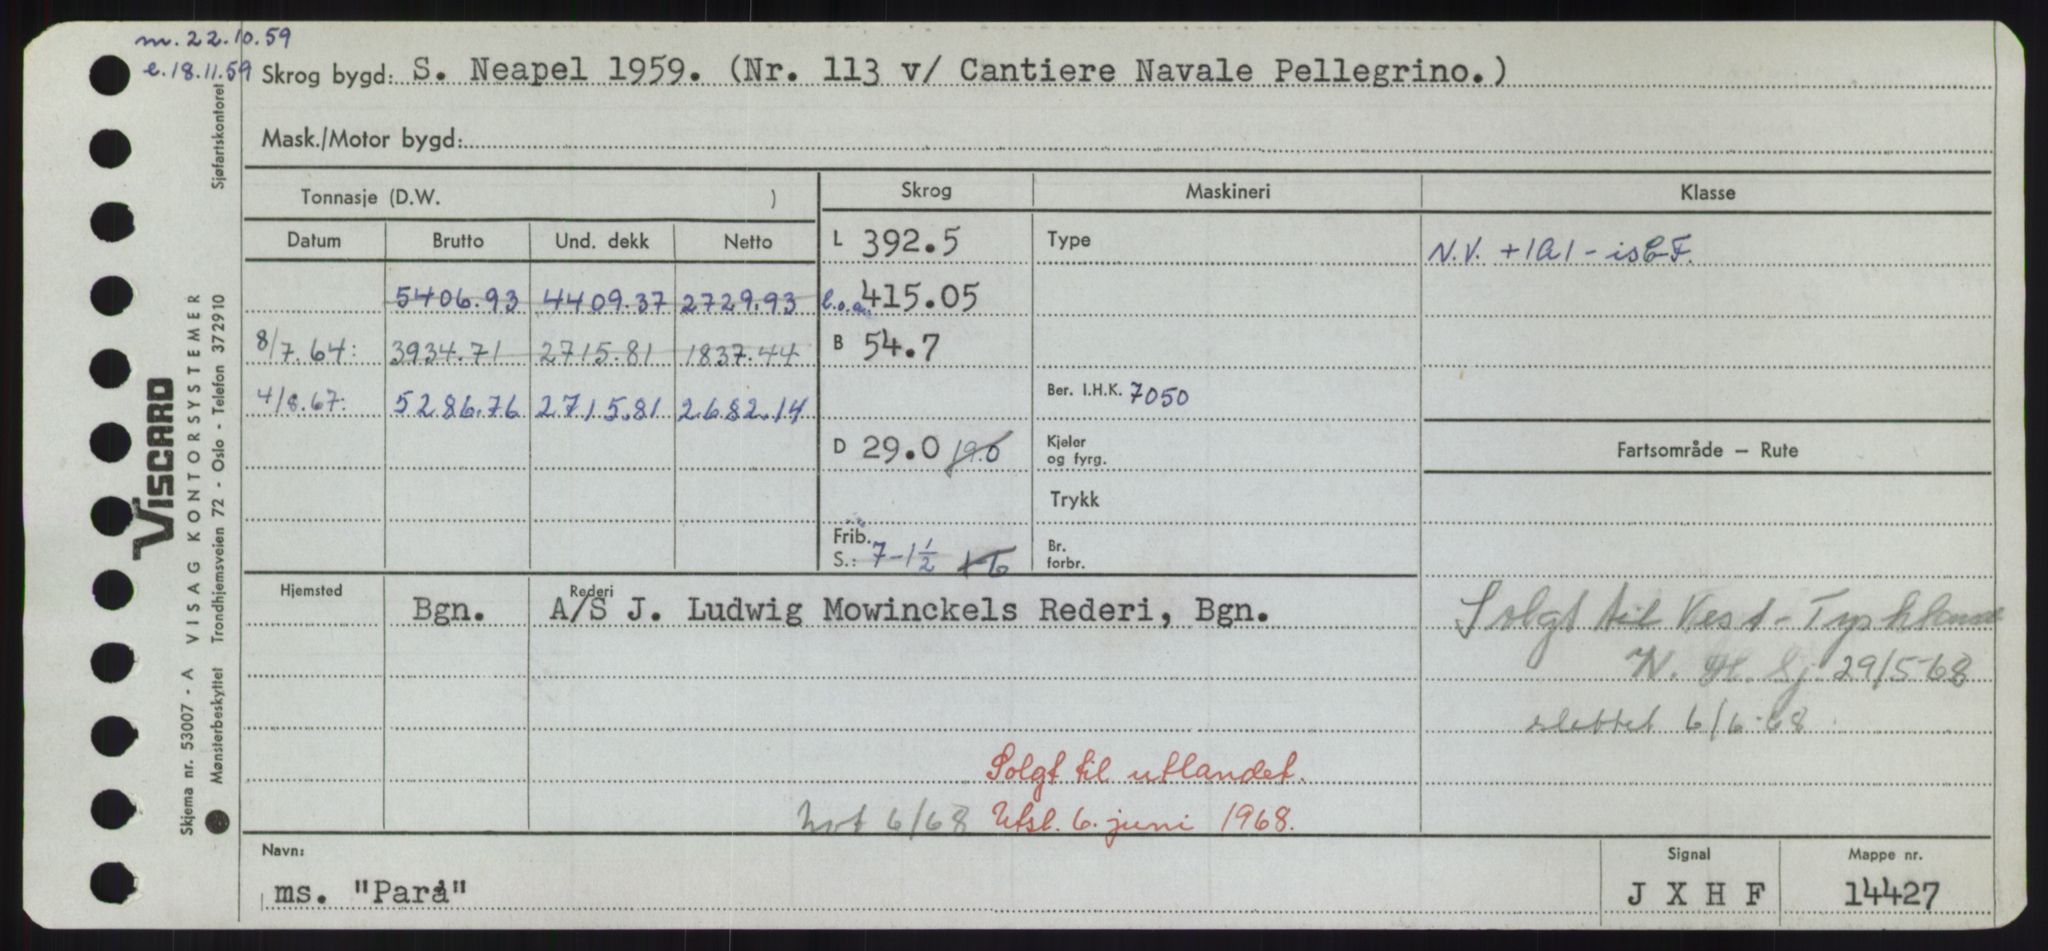 m. 22.10.59
e. 18.11.59
Skrog bygd: S. Neapel 1959. (Nr. 113 v/ Cantiere Navale Pellegrino.)
Mask./Motor bygd:
Tonnasje (D.W. )
Skrog
Maskineri
Klasse
Datum Brutto Und. dekk Netto
L 392.5
Type
N.V. +1A1 - isC F.
5406.93 4409.37 2729.93
l.o.a. 415.05
8/7.64: 3934.71 2715.81 1837.44
B 54.7
4/8.67: 5286.76 2715.81 2682.14
Ber. I.H.K. 7050
D 29.0 19.0
Kjeler og fyrg.
Fartsområde — Rute
Trykk
Frib. S.: 7-1½
Br. forbr.
Hjemsted Bgn.
Rederi A/S J. Ludwig Mowinckels Rederi, Bgn.
Solgt til Vest-Tyskland
N. H. Sj. 29/5-68
slettet 6/6-68
Solgt til utlandet.
Not 6/68 Utsl. 6. juni 1968.
Navn: ms. "Pará"
Signal J X H F
Mappe nr. 14427
Sjøfartskontoret
VISCARD
VISAG KONTORSYSTEMER
Trondhjemsveien 72 - Oslo - Telefon 372910
Skjema nr. 53007 - A
Mønsterbeskyttet